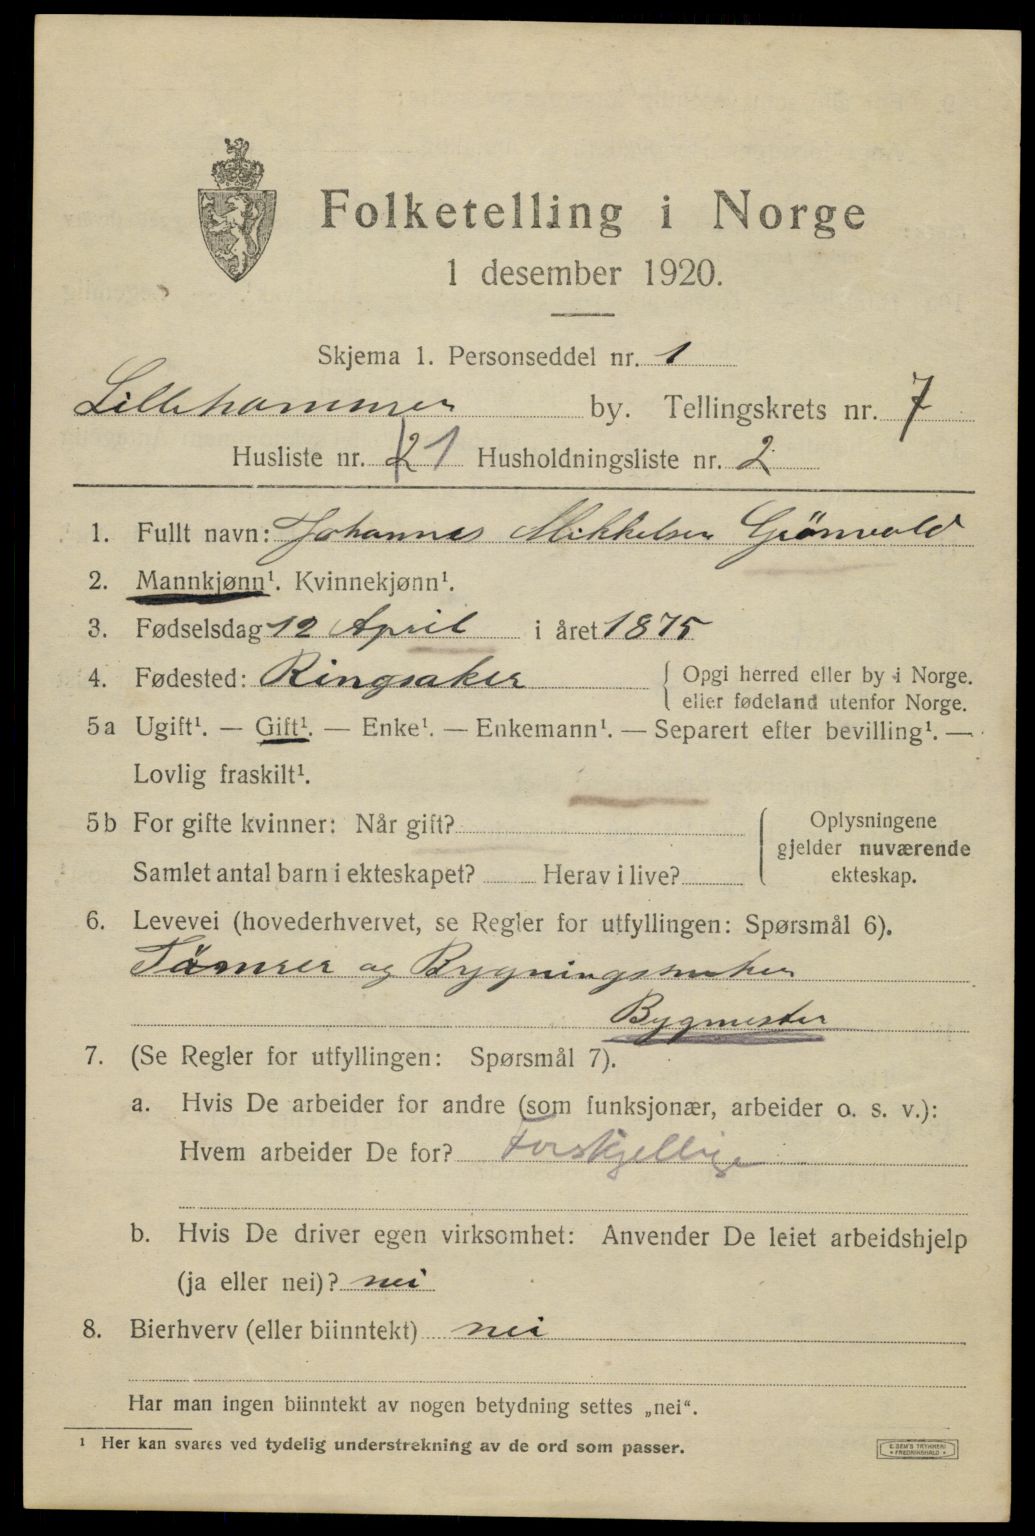 Folketelling i Norge
1 desember 1920.
Skjema 1. Personseddel nr. 1
Lillehammer by. Tellingskrets nr. 7
Husliste nr. 21 Husholdningsliste nr. 2
1. Fullt navn: Johannes Mikkelsen Grönvold
2. Mannkjønn¹. Kvinnekjønn¹.
3. Fødselsdag 12 April i året 1875
4. Fødested: Ringsaker { Opgi herred eller by i Norge.
eller fødeland utenfor Norge.
5a Ugift¹. — Gift¹. — Enke¹. — Enkemann¹. — Separert efter bevilling¹. —
Lovlig fraskilt¹.
5b For gifte kvinner: Når gift?
Samlet antal barn i ekteskapet? Herav i live?
Oplysningene
gjelder nuværende
ekteskap.
6. Levevei (hovederhvervet, se Regler for utfyllingen: Spørsmål 6).
Tömrer og Bygningssnekker
Bygmester
7. (Se Regler for utfyllingen: Spørsmål 7).
a. Hvis De arbeider for andre (som funksjonær, arbeider o. s. v.):
Hvem arbeider De for? Forskjellige
b. Hvis De driver egen virksomhet: Anvender De leiet arbeidshjelp
(ja eller nei)? nei
8. Bierhverv (eller biinntekt) nei
Har man ingen biinntekt av nogen betydning settes „nei“.
¹ Her kan svares ved tydelig understrekning av de ord som passer.
E. SEM'S TRYKKERI
FREDRIKSHALD